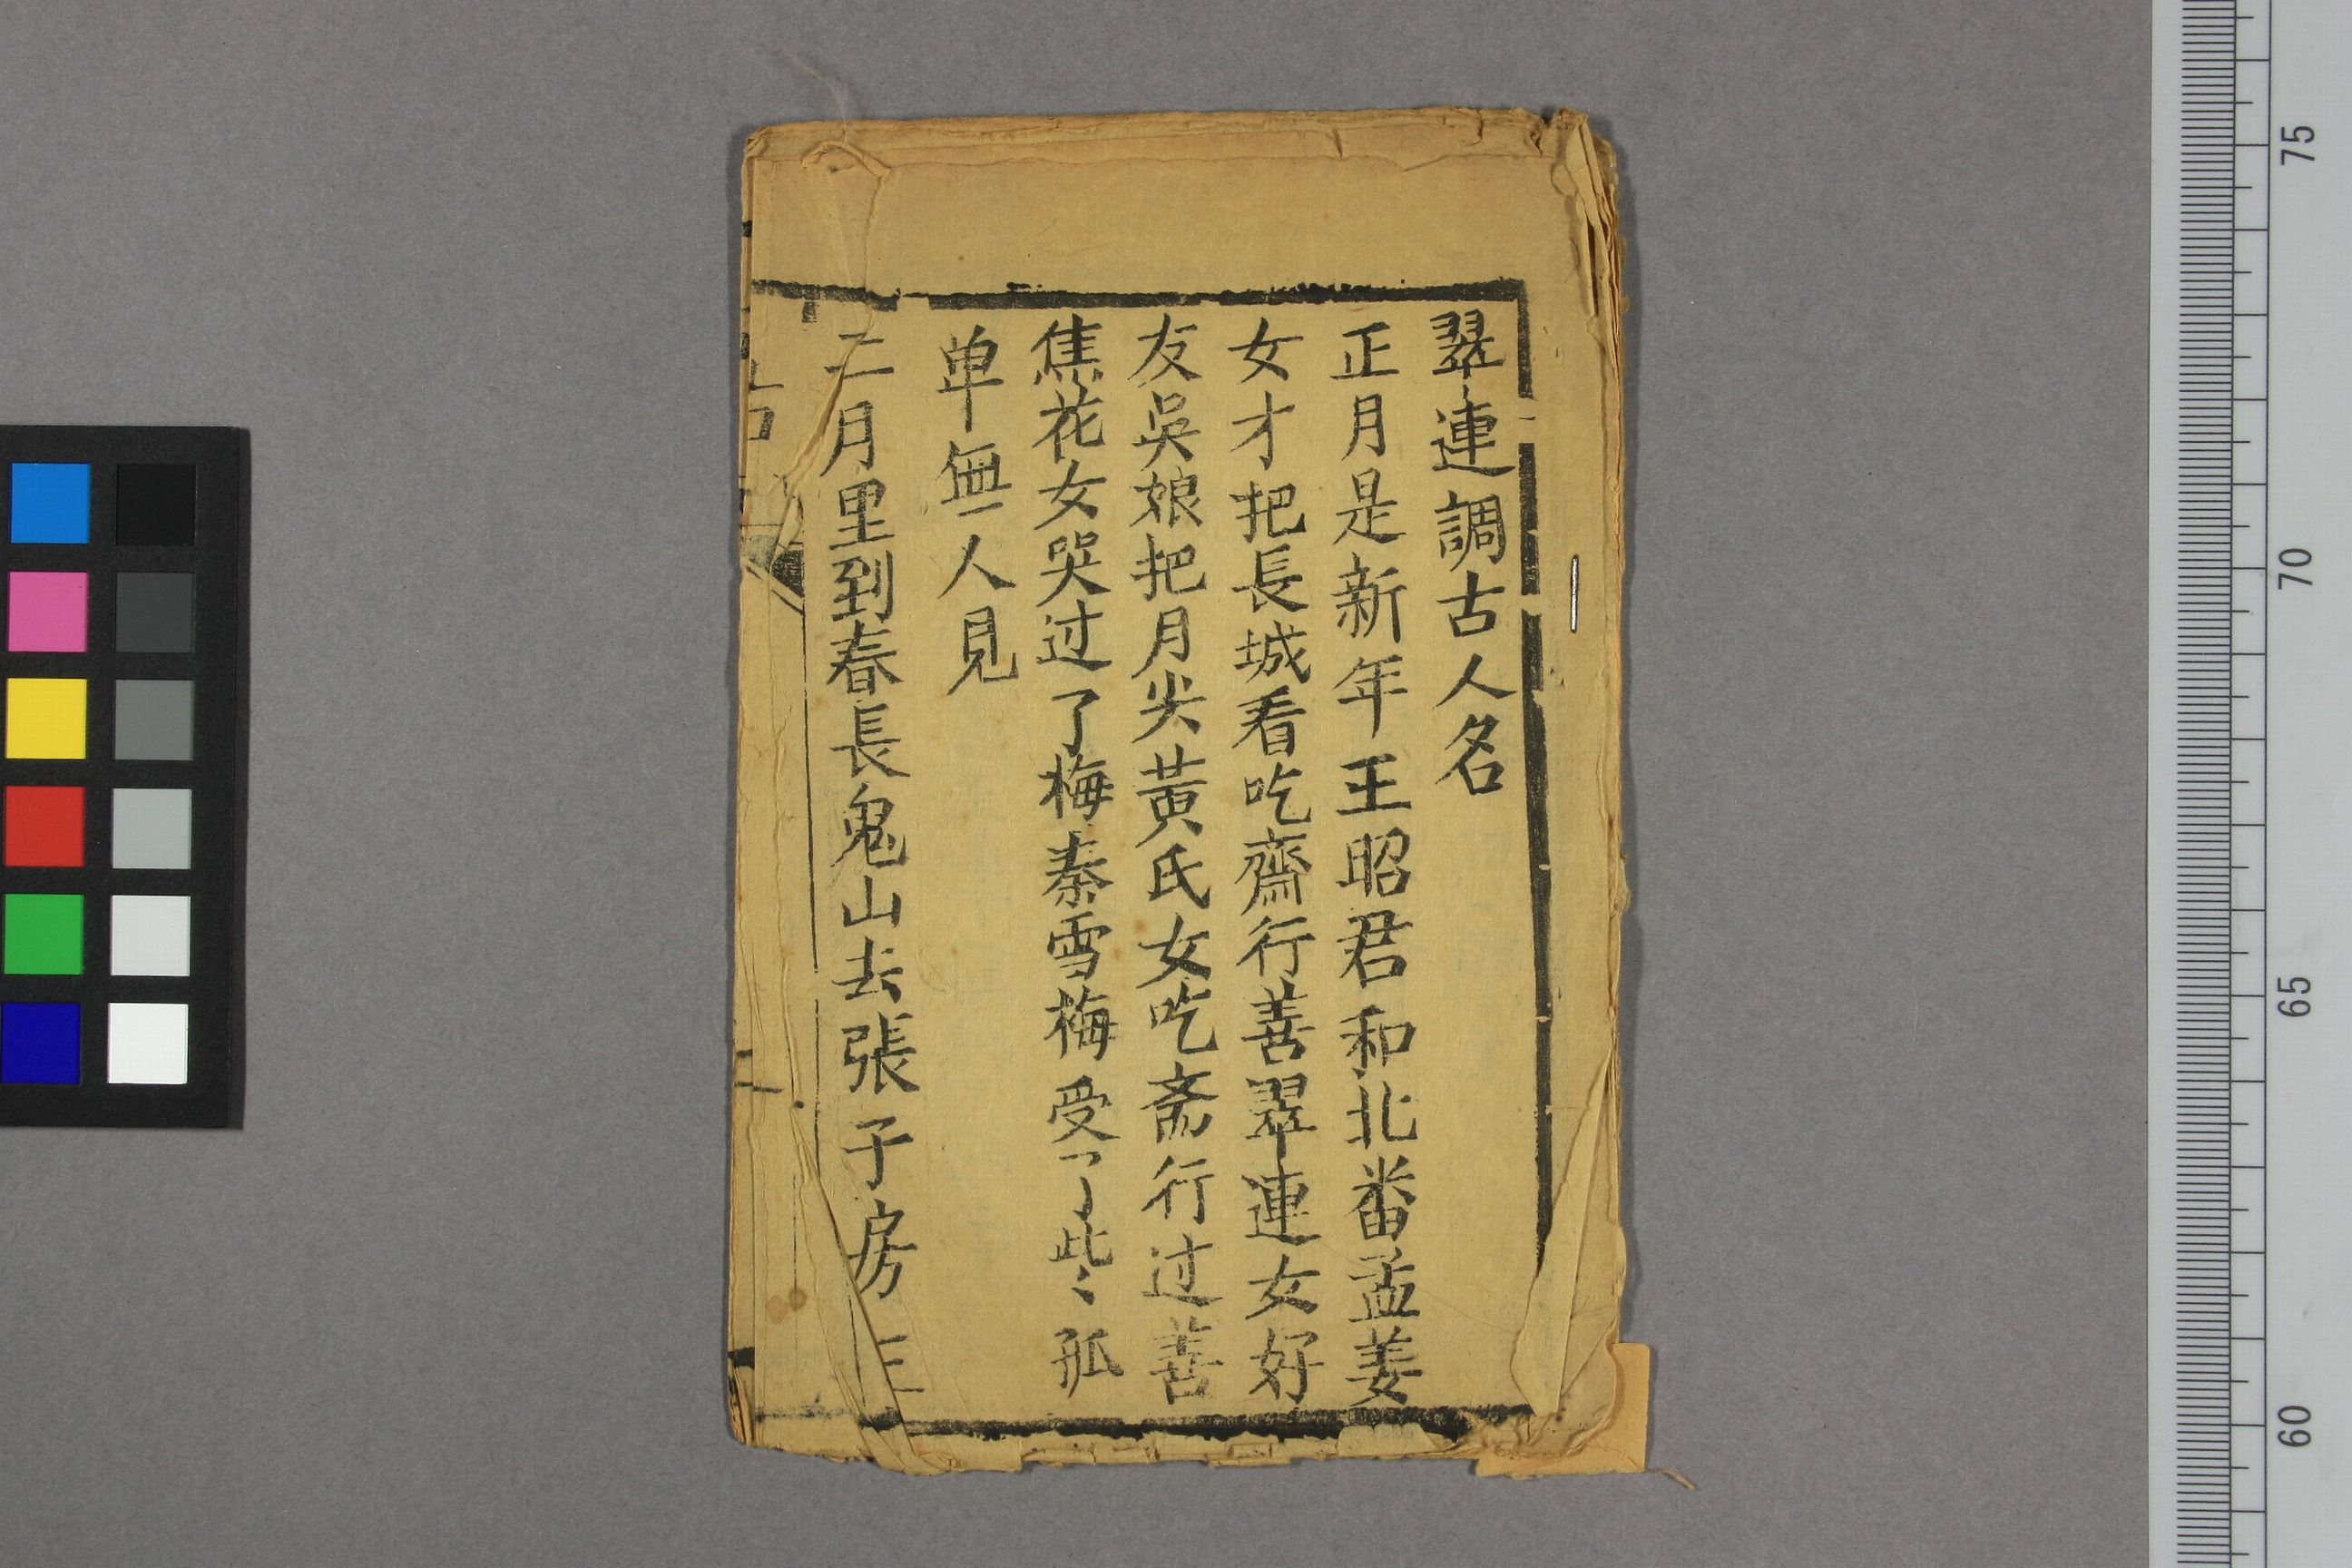 翠連調古人名
正月是新年王昭君和北番孟姜
女才把長城看吃齋行善翠連女好
友吳娘把月尖黃氏女吃斎行过善
焦花女哭过了梅秦雪梅受了些〻孤
单無一人見
二月里到春長鬼山去張子房三
75
70
65
60